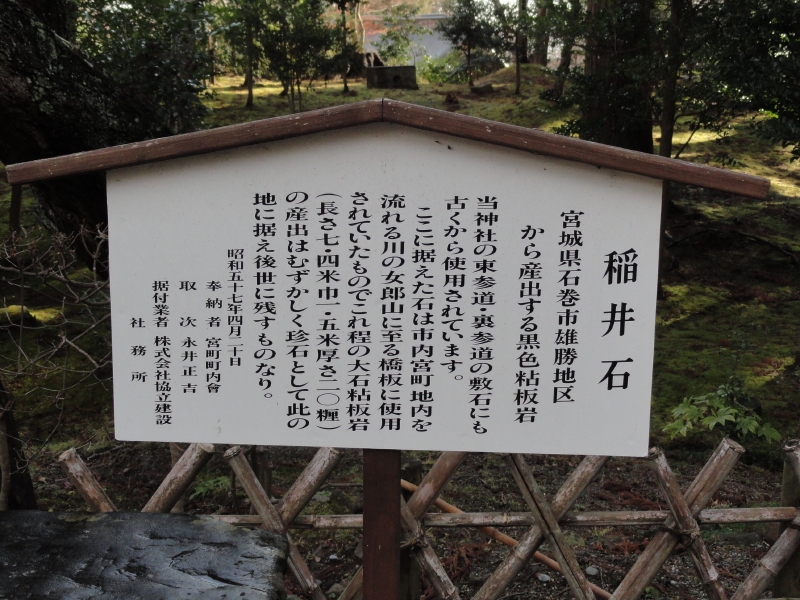 稲井石
宮城県石巻市雄勝地区
から産出する黒色粘板岩
当神社の東参道・裏参道の敷石にも
古くから使用されています。
ここに据えた石は市内宮町地内を
流れる川の女郎山に至る橋板に使用
されていたものでこれ程の大石粘板岩
(長さ七・四米巾一・五米厚さ二〇糎)
の産出はむずかしく珍石として此の
地に据え後世に残すものなり。
昭和五十七年四月二十日
奉納者 宮町町内會
取次 永井正吉
据付業者 株式会社協立建設
社務所